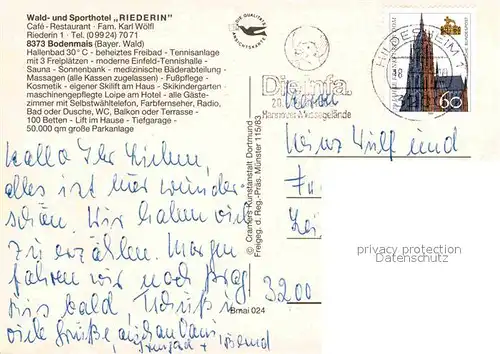 Wald- und Sporthotel „RIEDERIN"
Café - Restaurant - Fam. Karl Wölfl
Riederin 1 · Tel. (0 99 24) 70 71
8373 Bodenmais (Bayer. Wald)
Hallenbad 30° C - beheiztes Freibad - Tennisanlage
mit 3 Freiplätzen - moderne Einfeld-Tennishalle -
Sauna - Sonnenbank - medizinische Bäderabteilung -
Massagen (alle Kassen zugelassen) - Fußpflege -
Kosmetik - eigener Skilift am Haus - Skikindergarten -
maschinengepflegte Loipe am Hotel - alle Gäste-
zimmer mit Selbstwähltelefon, Farbfernseher, Radio,
Bad oder Dusche, WC, Balkon oder Terrasse -
100 Betten - Lift im Hause - Tiefgarage -
50.000 qm große Parkanlage
Hallo Ihr Lieben,
alles ist hier wunder-
schön. Wir haben viel
zu erzählen. Morgen
fahren wir noch Prag
Bis bald, Tschüß
viele Grüße auch an Dani
Irmgard +
© Cramers Kunstanstalt Dortmund
Freigeg. d. Reg.-Präs. Münster 115/83
Bmai 024
DIE QUALITÄTS
ANSICHTSKARTE
Die Infa.
20.
Hannover Messegelände
HILDESHEIM 1
DEUTSCHE BUNDESPOST
60
Wulf und
3200
privacy protection
Datenschutz